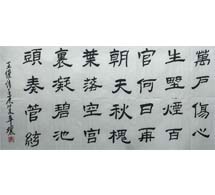 萬戶傷心
生野煙百
官何日再
朝天秋槐
葉落空宮
裏凝碧池
頭奏管絃
王維詩